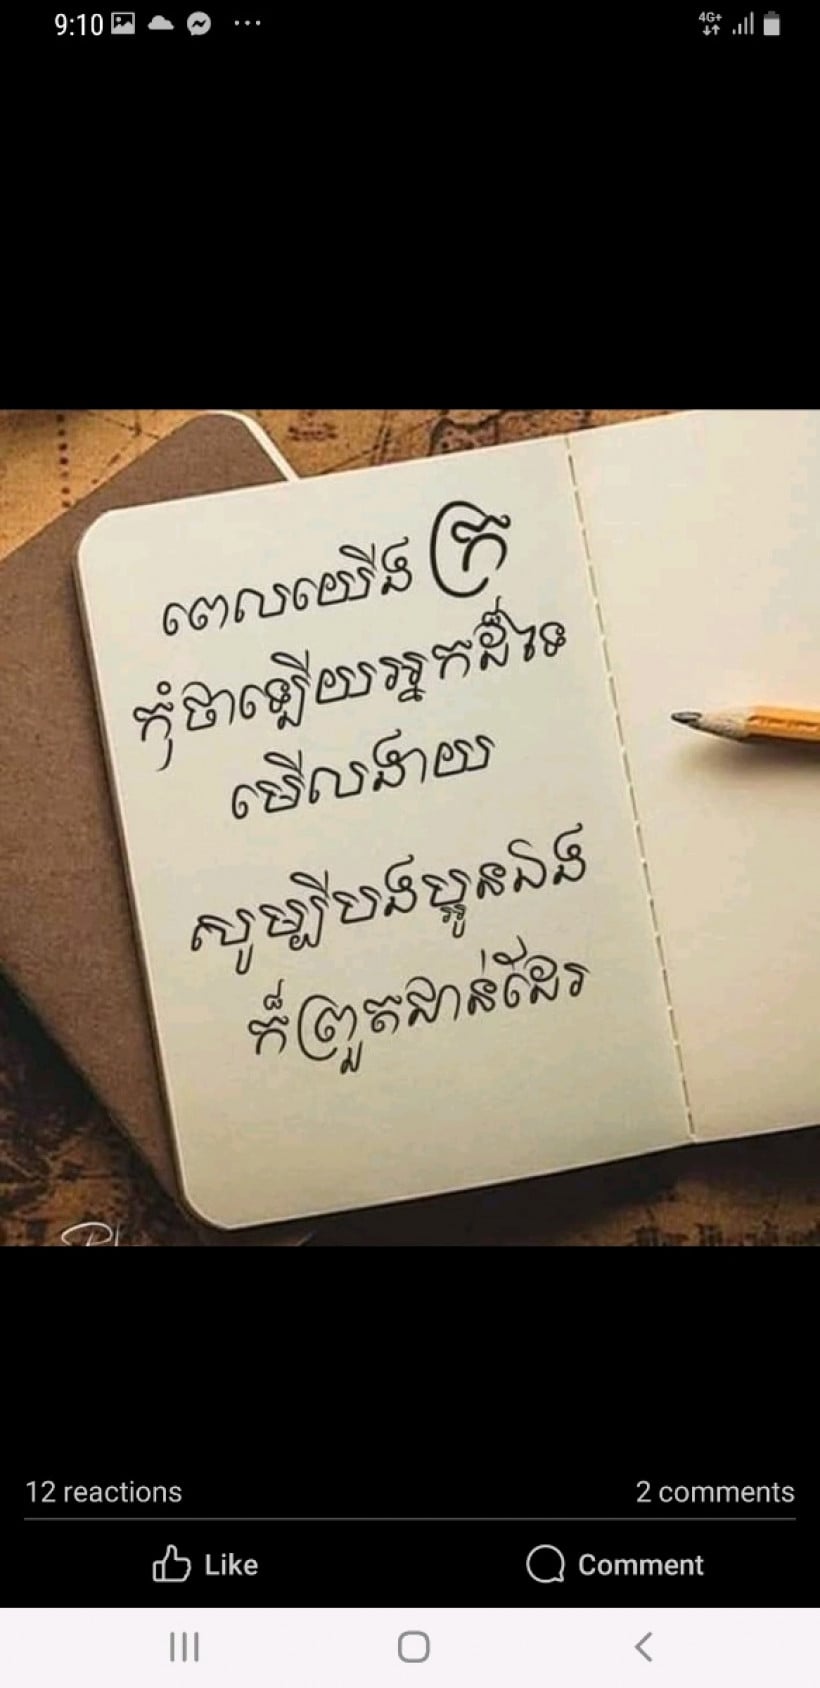 9:10
4G+
ពេលយើងក្រ
កុំថាឡើយអ្នកដ៏ទៃ
មើលងាយ
សូម្បីបងប្អូនឯង
ក៏ព្រួតជាន់ដែរ
12 reactions
2 comments
Like
Comment